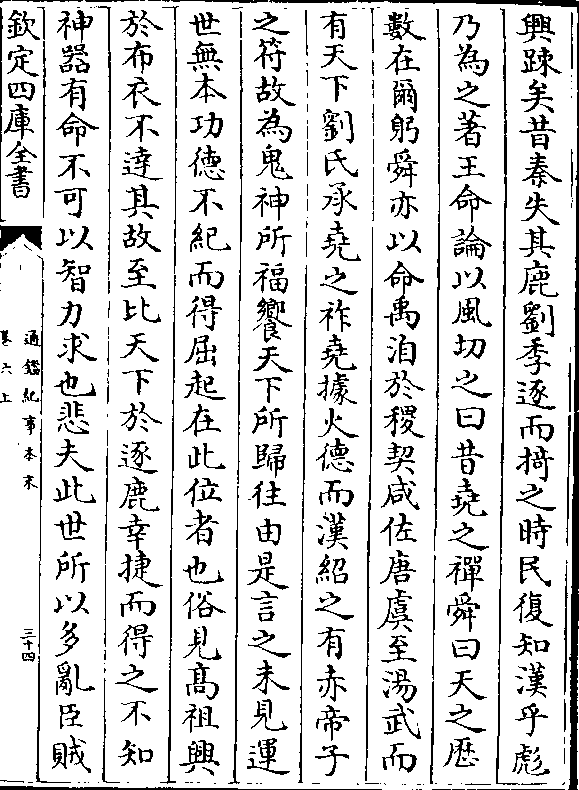 興踈矣昔秦失其鹿劉季逐而掎之時民復知漢乎彪
乃為之著王命論以風切之曰昔堯之禪舜曰天之厯
數在爾躬舜亦以命禹洎於稷契咸佐唐虞至湯武而
有天下劉氏承堯之祚堯據火德而漢紹之有赤帝子
之符故為鬼神所福饗天下所歸往由是言之未見運
世無本功德不紀而得屈起在此位者也俗見髙祖興
於布衣不達其故至比天下於逐鹿幸捷而得之不知
神器有命不可以智力求也悲夫此世所以多亂臣賊
欽定四庫全書
通鑑紀事本末
卷六上
三十四